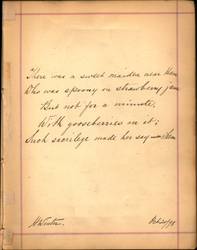 There was a sweet maiden near
Who was spoony on strawberry jam
But not for a minute,
With gooseberries in it;
Such sacrilege made her say —